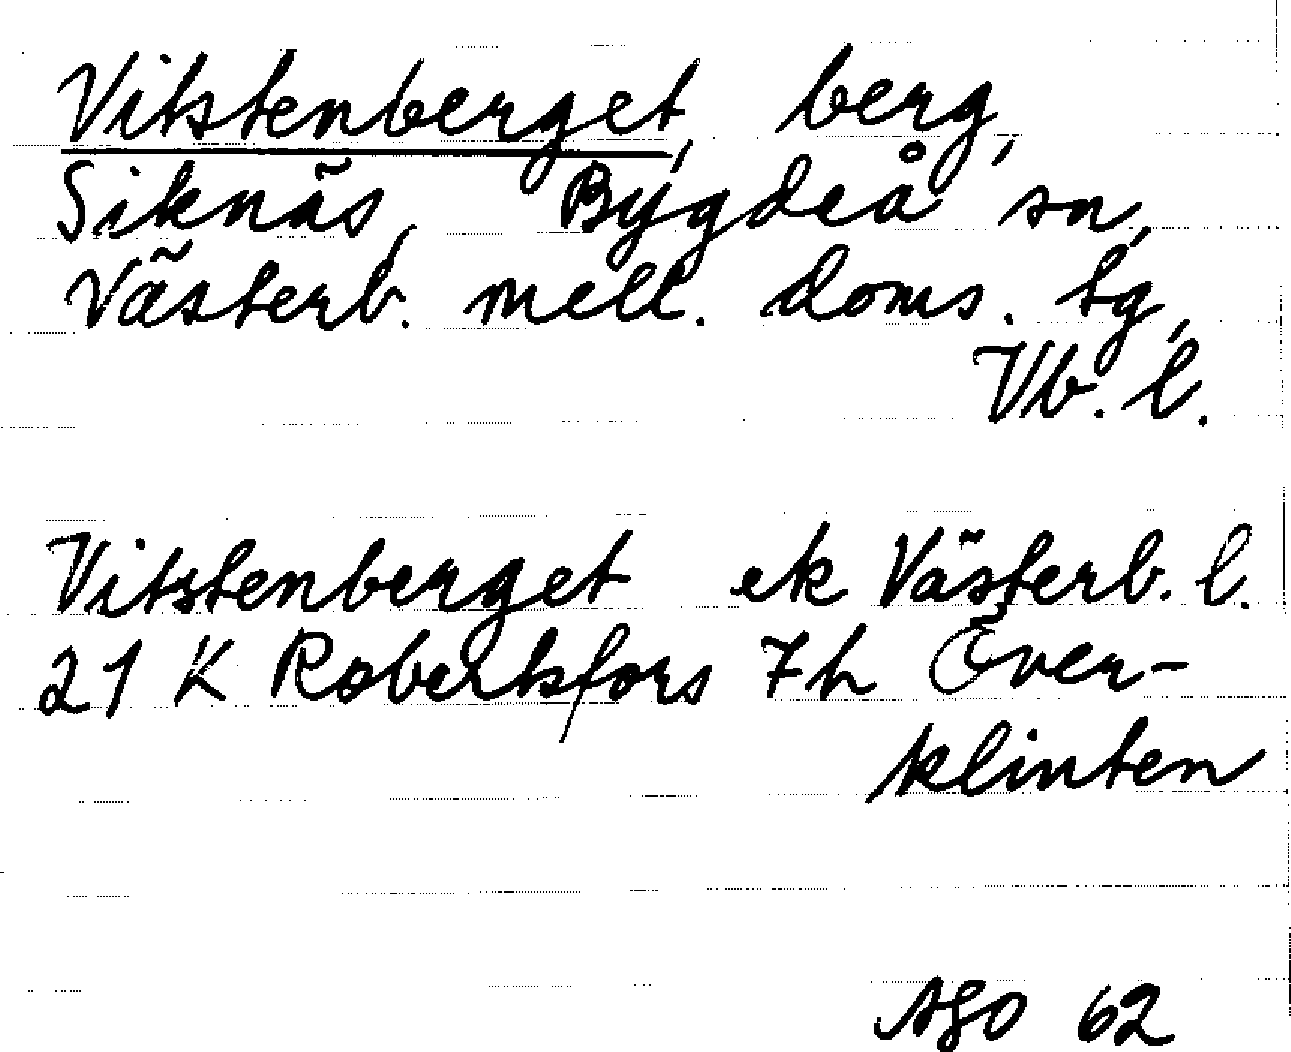 Vitstenberget, berg,
Siknäs, Bygdeå sn,
Västerb. mell. doms. tg,
Vb. l.
Vitstenberget ek Västerb. l.
21 K Robertsfors 7h Över-
klinten
AGO 62